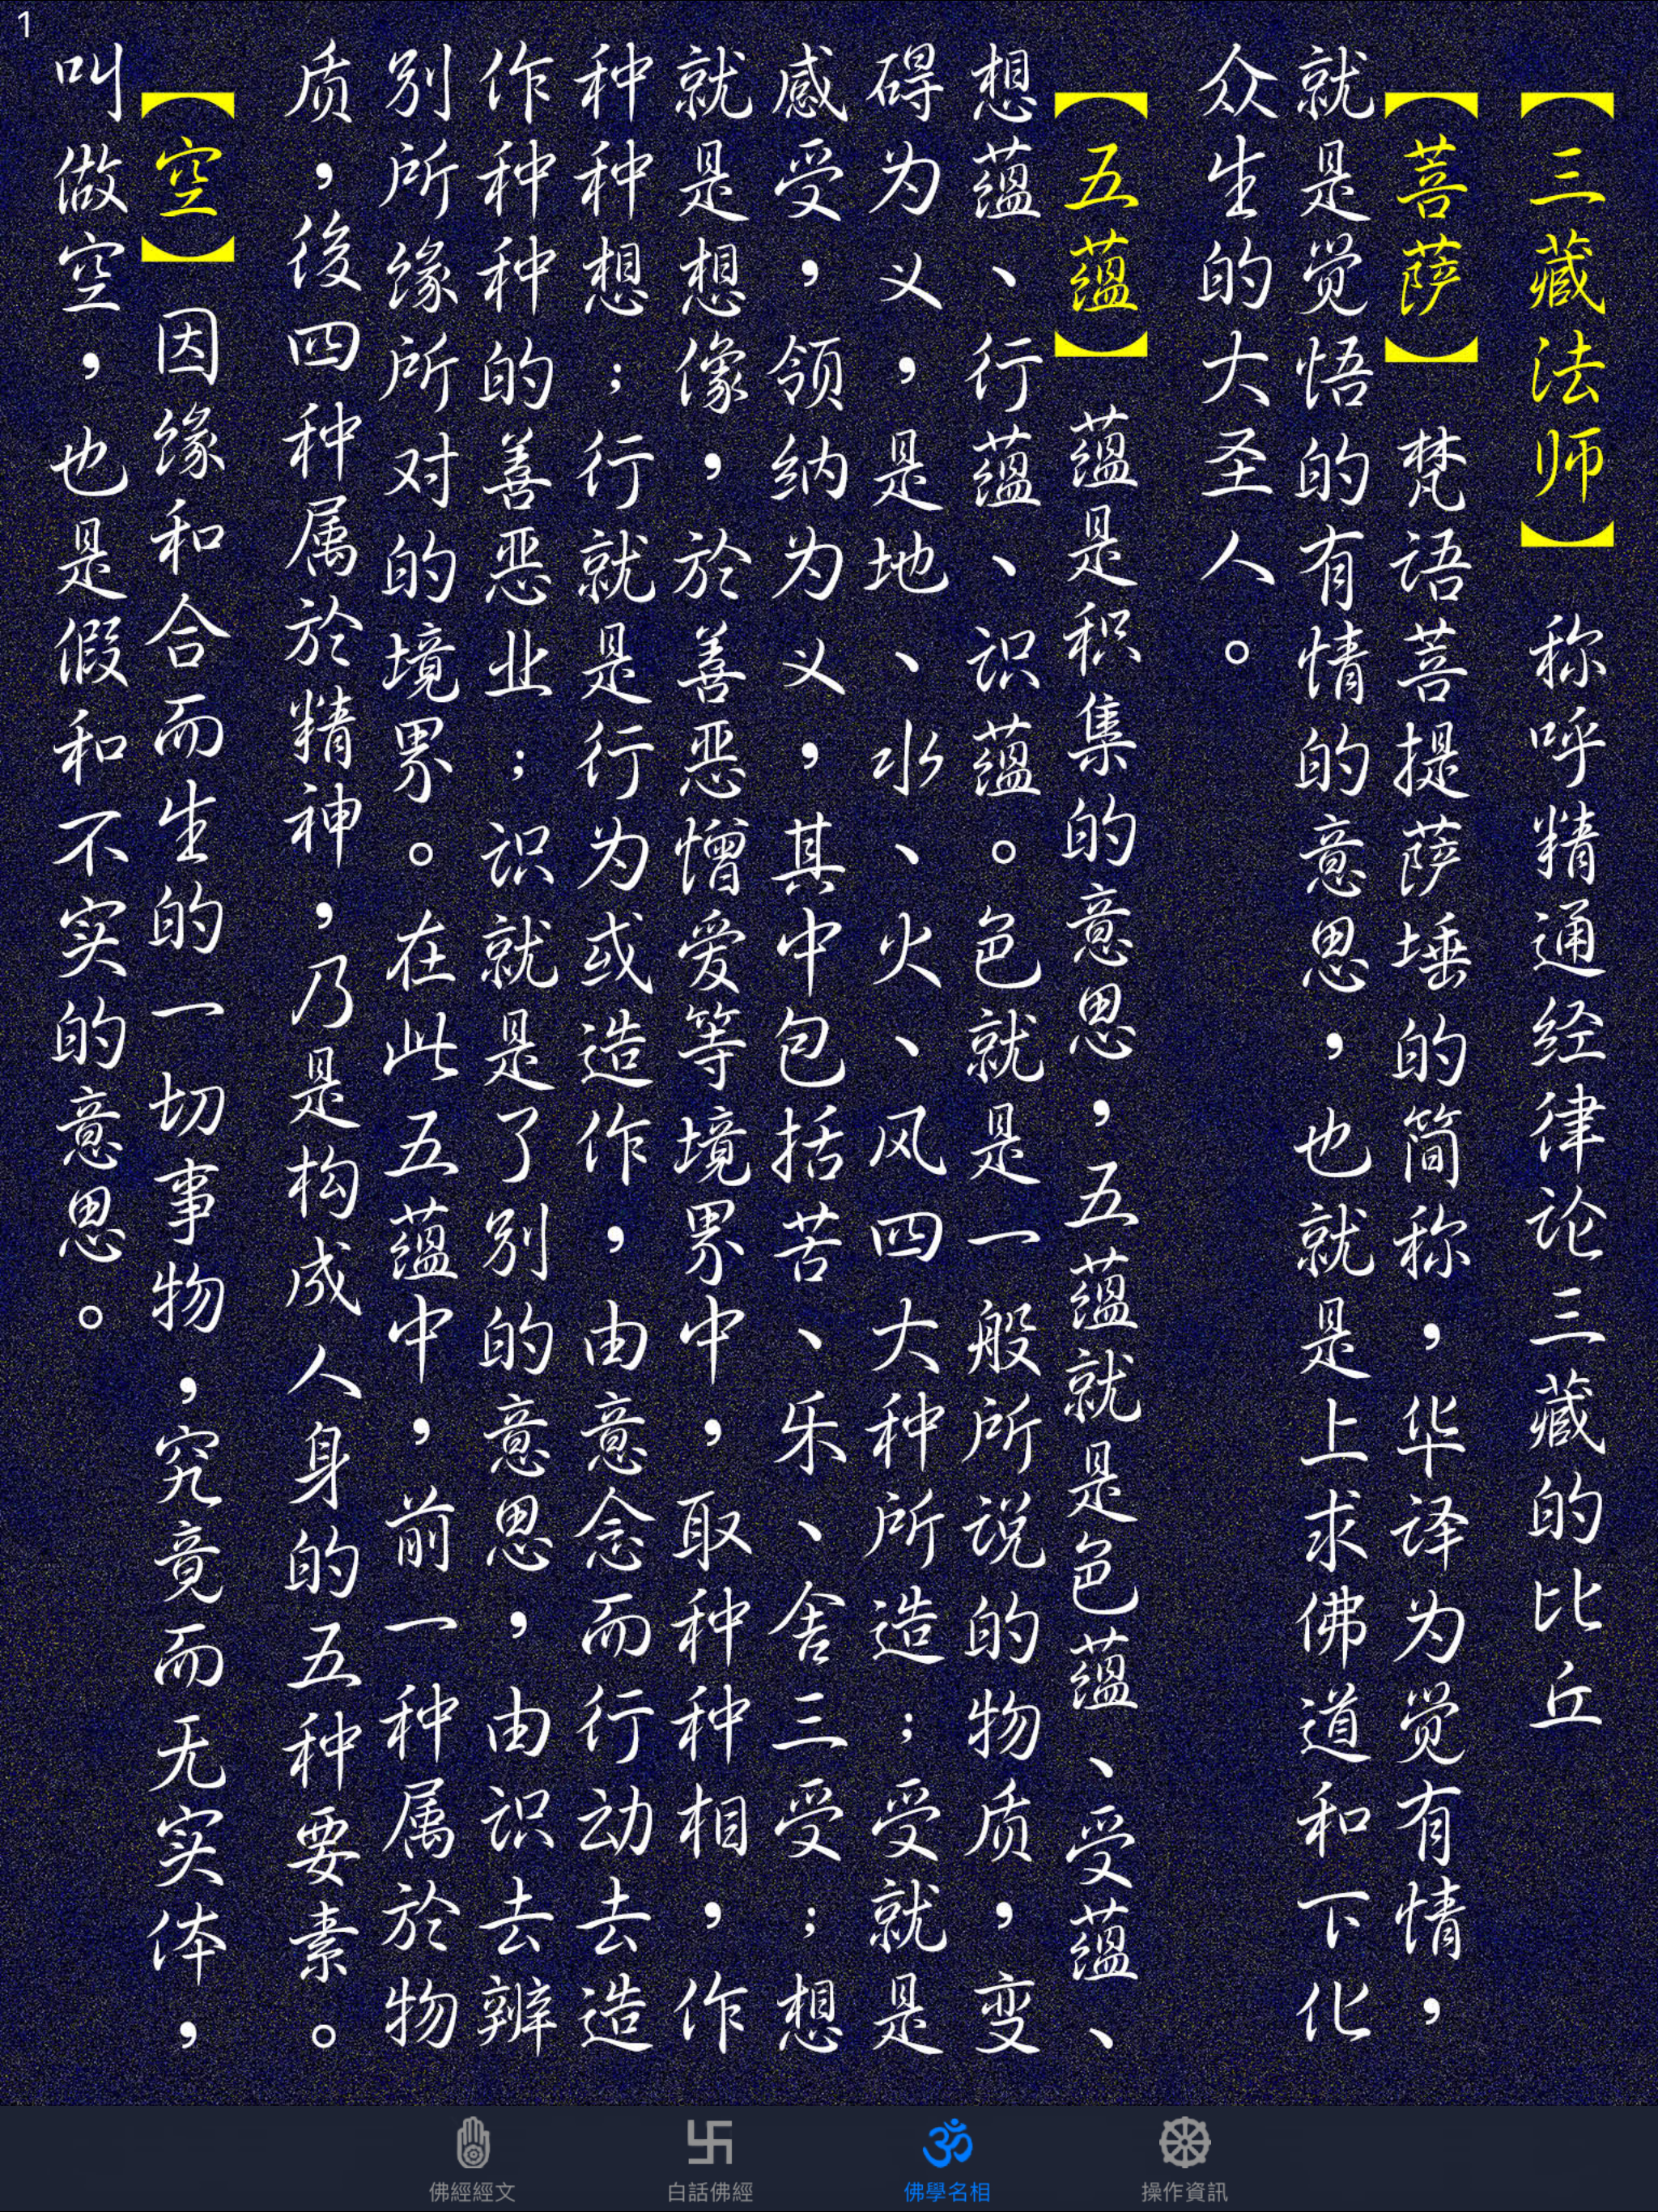 1
【三藏法师】 称呼精通经律论三藏的比丘
【菩萨】 梵语菩提萨埵的简称，华译为觉有情，
就是觉悟的有情的意思，也就是上求佛道和下化
众生的大圣人。
【五蕴】 蕴是积集的意思，五蕴就是色蕴、受蕴、
想蕴、行蕴、识蕴。色就是一般所说的物质，变
碍为义，是地、水、火、风四大种所造；受就是
感受，领纳为义，其中包括苦、乐、舍三受；想
就是想像，於善恶憎爱等境界中，取种种相，作
种种想；行就是行为或造作，由意念而行动去造
作种种的善恶业；识就是了别的意思，由识去辨
别所缘所对的境界。在此五蕴中，前一种属於物
质，後四种属於精神，乃是构成人身的五种要素。
【空】 因缘和合而生的一切事物，究竟而无实体，
叫做空，也是假和不实的意思。
佛經經文
白話佛經
佛學名相
操作資訊